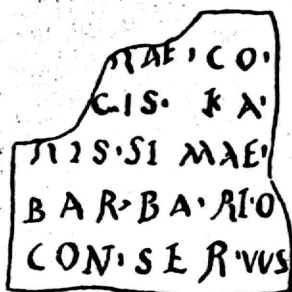 RAE · CO ·
CIS · KA ·
RIS · SI MAE ·
BAR · BA · RI · O
CON · SE R · VVS